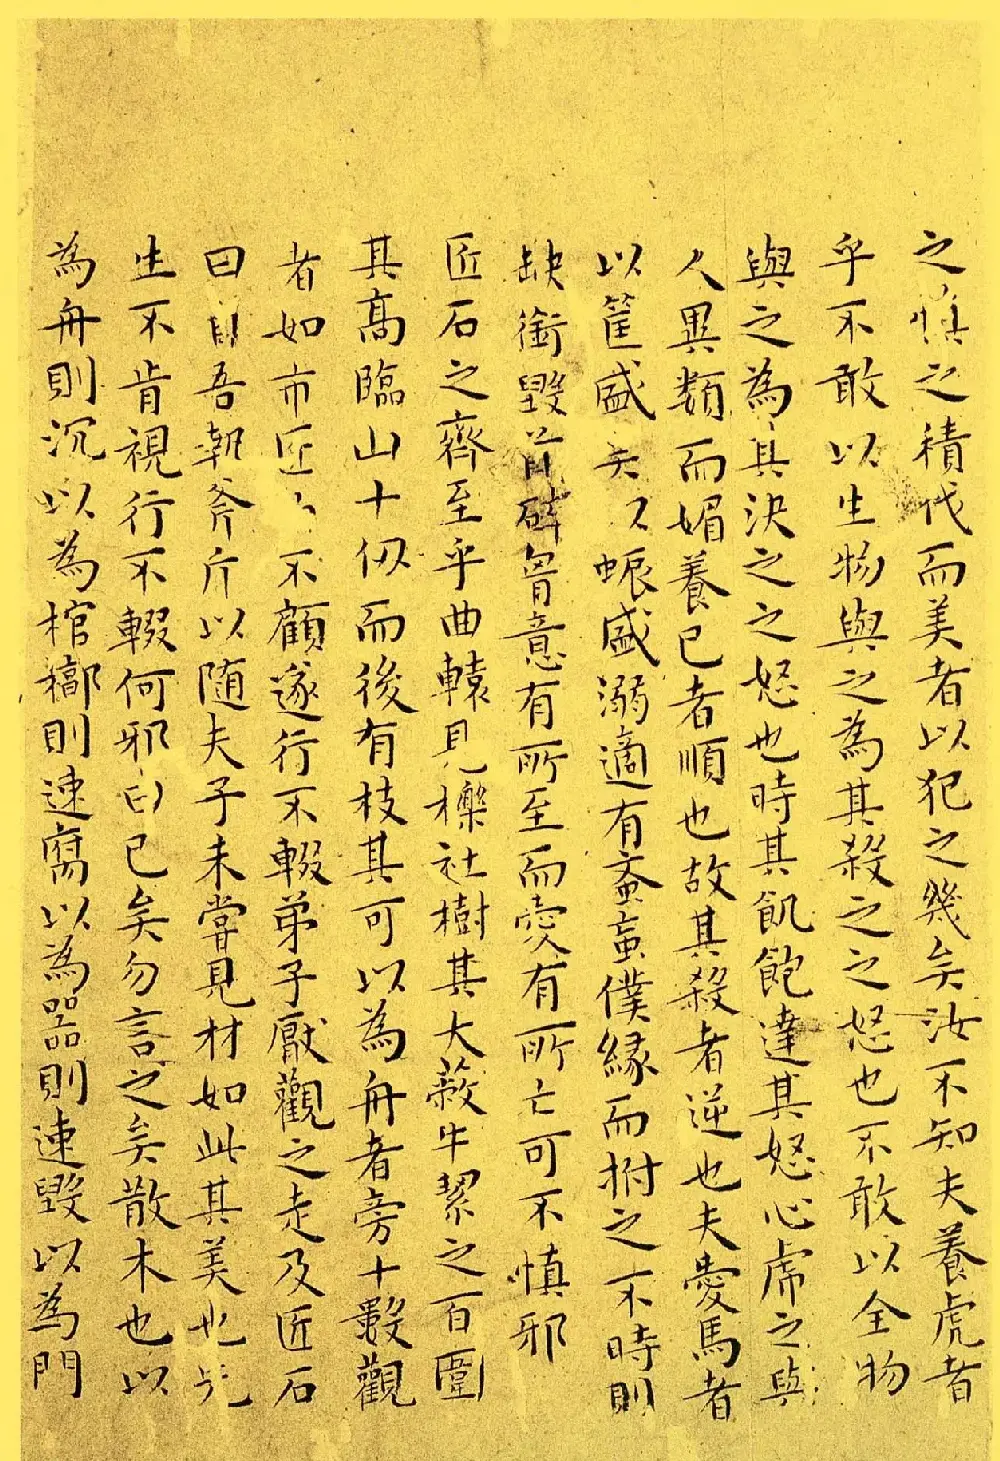 之慎之積伐而美者以犯之幾矣汝不知夫養虎者
乎不敢以生物與之為其殺之之怒也不敢以全物
與之為其決之之怒也時其飢飽達其怒心虎之與
人異類而媚養已者順也故其殺者逆也夫愛馬者
以筐盛矢以蜄盛溺適有蚉䖟僕緣而拊之不時則
缺銜毀首碎胷意有所至而愛有所亡可不慎邪
匠石之齊至乎曲轅見櫟社樹其大蔽牛絜之百圍
其高臨山十仞而後有枝其可以為舟者旁十數觀
者如市匠不顧遂行不輟弟子厭觀之走及匠石
曰自吾執斧斤以随夫子未嘗見材如此其美也先
生不肯視行不輟何邪曰已矣勿言之矣散木也以
為舟則沉以為棺槨則速腐以為器則速毀以為門